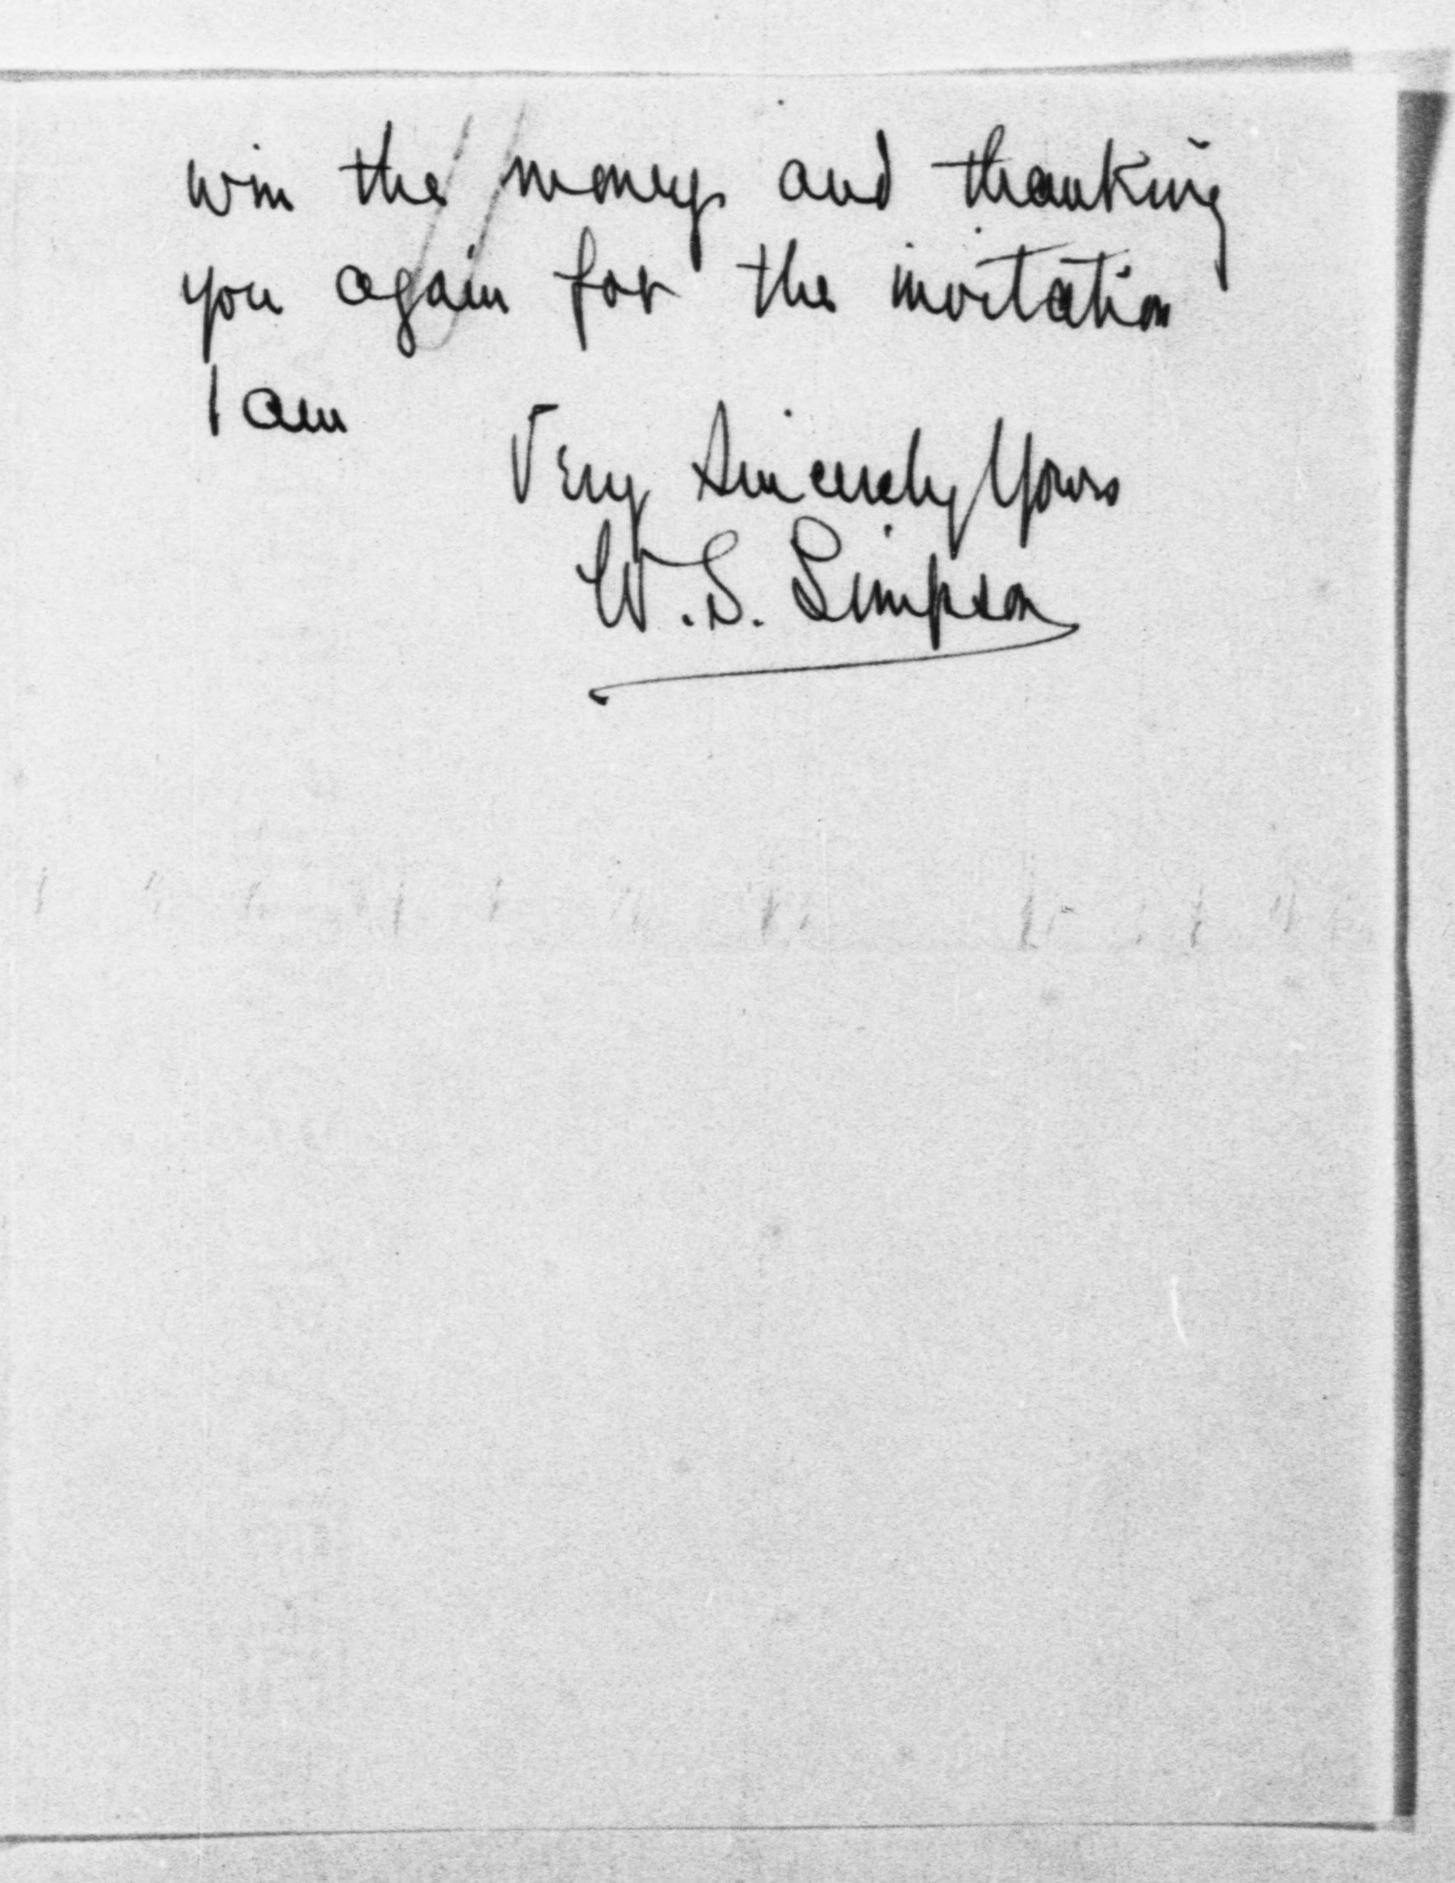 win the money and thanking
you again for the invitation
I am
Very Sincerely Yours
W. S. Simpson